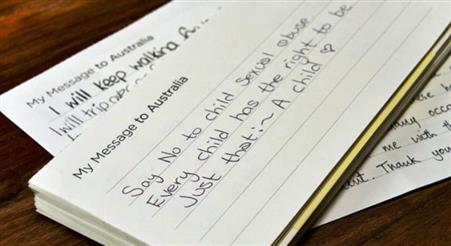 My Message to Australia
I will keep walking
I will trip
My Message to Australia
Say No to child Sexual abuse
Every child has the right to be
Just that:~ A child
occa
me with
Thank you